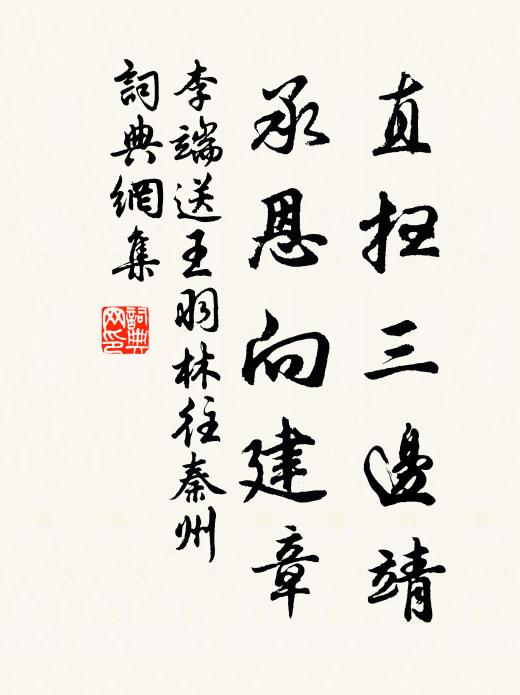 直扫三邊靖
承恩向建章
李端送王羽林往秦州
詞典網集
詞典网印